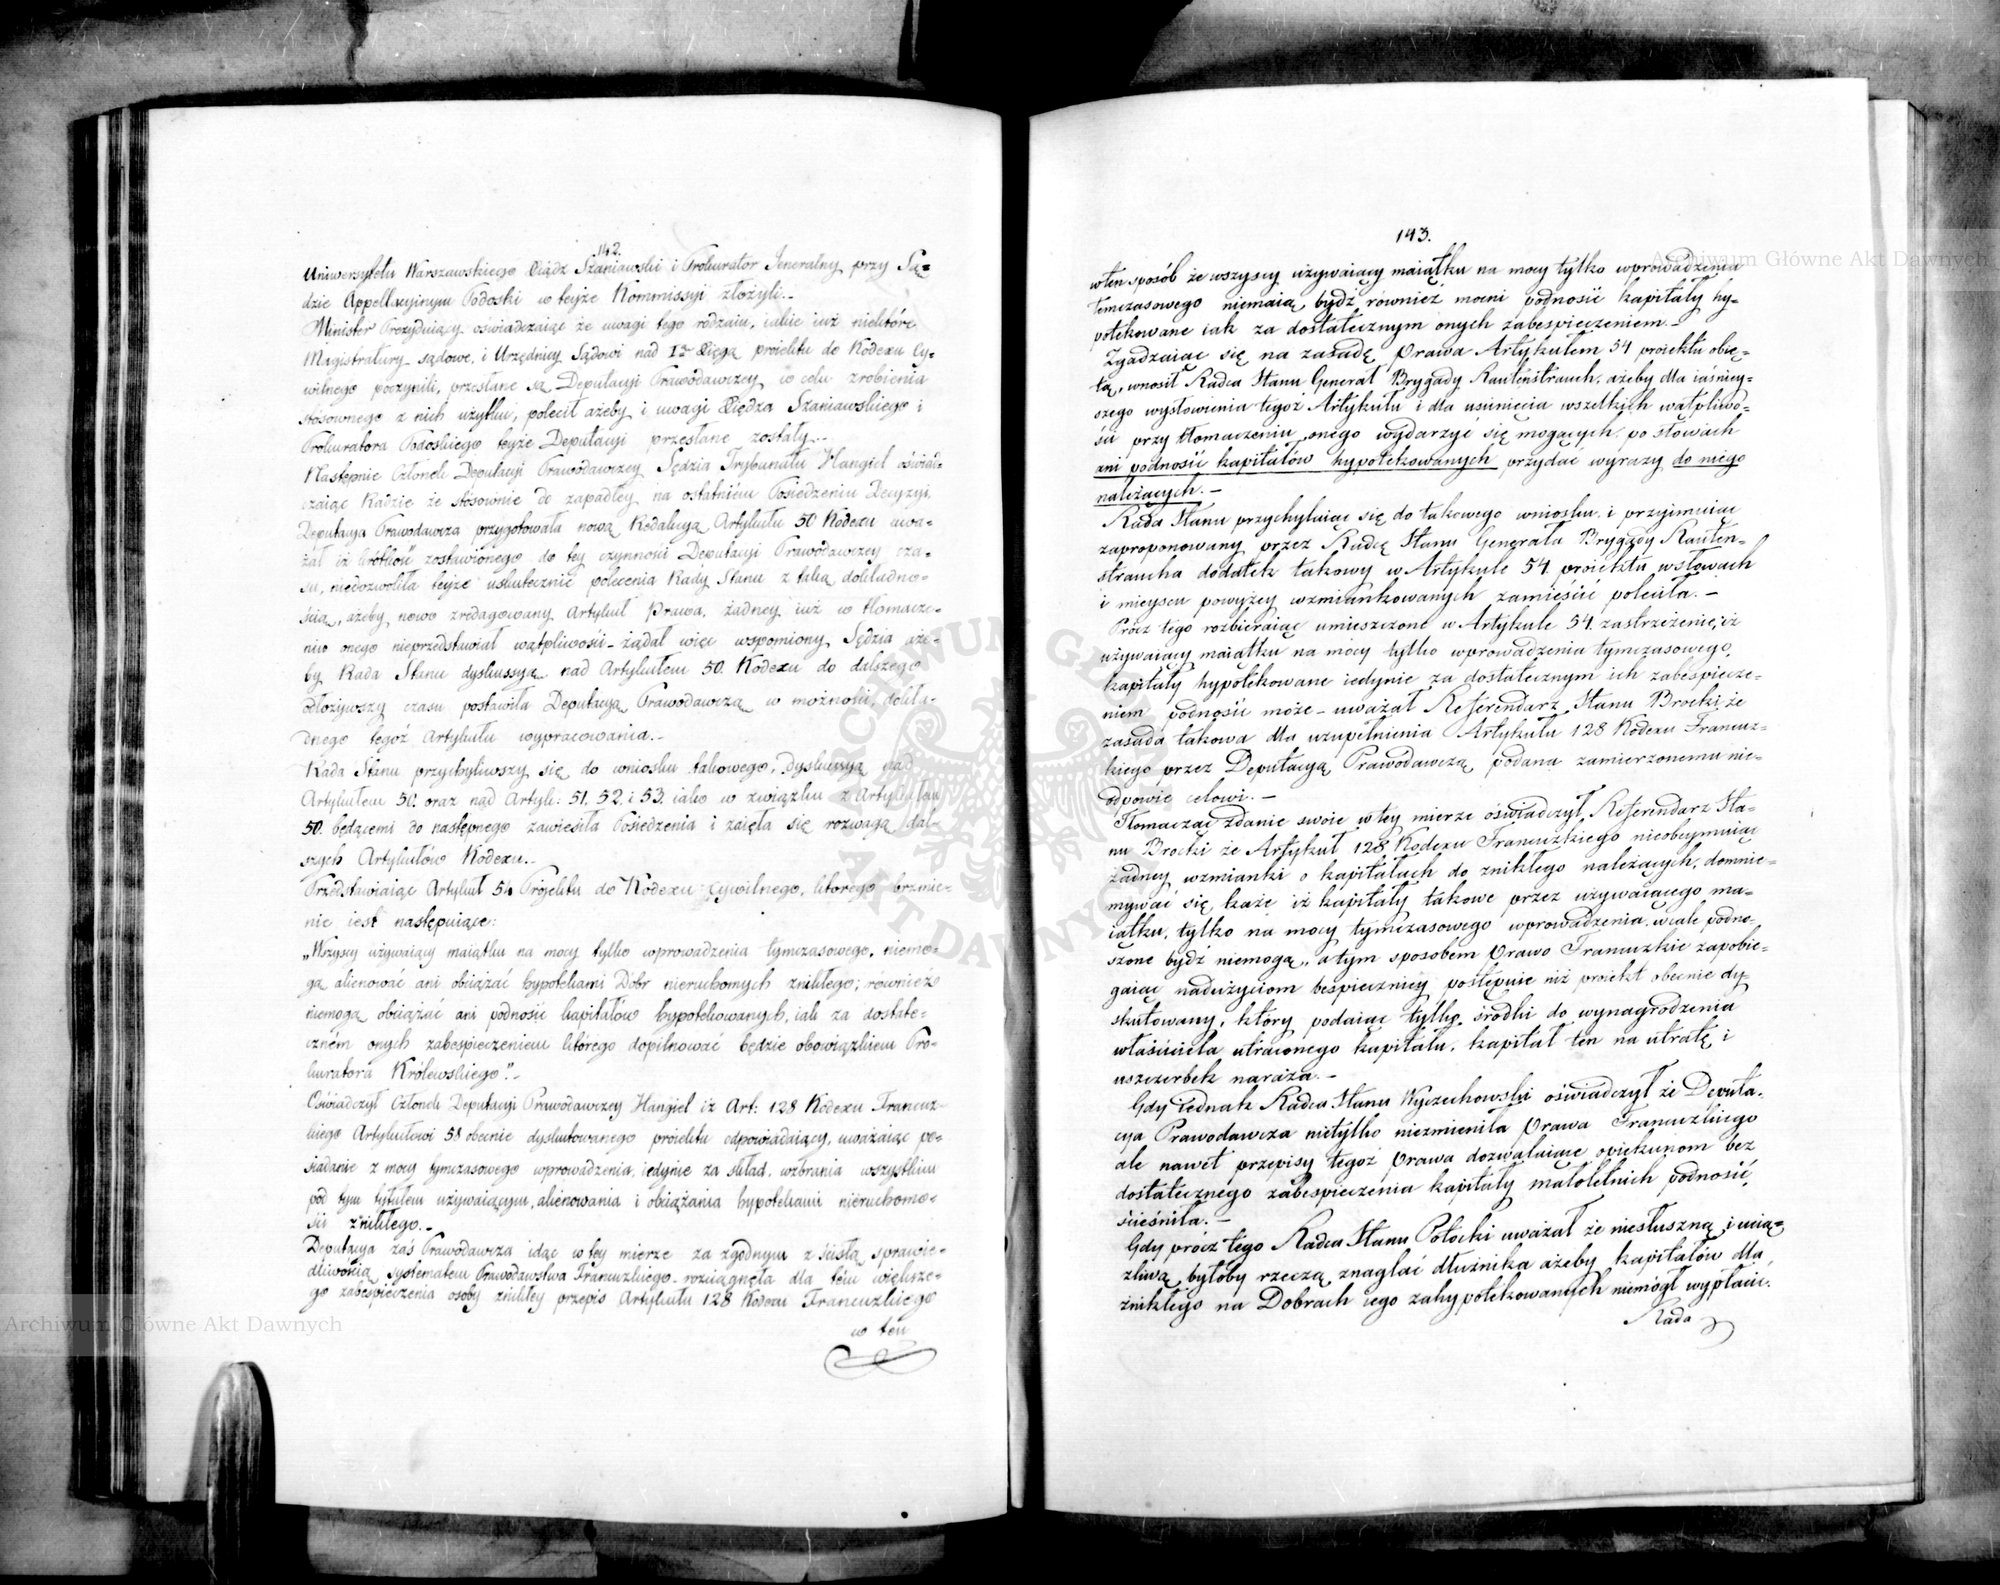 142.
Uniwersytetu Warszawskiego Xiądz Szaniawski i Prokurator Jeneralny przy Są=
dzie Appellacyinym Podoski w teyże Kommissyi złożyli._
Minister Prezyduiący oświadczaiąc że uwagi tego rodzaiu, iakie iuż niektóre
Magistratury sądowe i Urzędnicy Sądowi nad Ią Xięgą proiektu do Kodexu Cy=
wilnego poczynili, przesłane są Deputacyi Prawodawczey w celu zrobienia
stosownego z nich użytku, polecił ażeby i uwagi Xiędza Szaniawskiego i
Prokuratora Podoskiego teyże Deputacyi przesłane zostały._
Następnie Członek Deputacyi Prawodawczey Sędzia Trybunału Hangiel oświad=
czaiąc Radzie że stosownie do zapadłey na ostatniem Posiedzeniu Decyzyi,
Deputacya Prawodawcza przygotowała nową Redakcyą Artykułu 50 Kodexu uwa=
żał iż krótkość zostawionego do tey czynności Deputacyi Prawodawczey cza=
su, niedozwoliła teyże uskutecznić polecenia Rady Stanu z taką dokładno=
ścią, ażeby nowo zredagowany Artykuł Prawa, żadney iuż w tłomacze=
niu onego nieprzedstawiał wątpliwości_ żądał więc wspomiony Sędzia aże=
by Rada Stanu dyskussyą nad Artykułem 50. Kodexu do dalszego
odłożywszy czasu postawiła Deputacyą Prawodawczą w możności, dokła=
dnego tegoż Artykułu wypracowania._
Rada Stanu przychyliwszy się do wniosku takowego, dyskussyą nad
Artykułem 50. oraz nad Artyk: 51. 52. i 53. iako w związku z Artykułem
50. będącemi do następnego zawiesiła Posiedzenia i zaięła się rozwagą dal=
szych Artykułów Kodexu._
Przedstawiaiąc Artykuł 54 Projektu do Kodexu Cywilnego, którego brzmie=
nie iest następuiące:
„Wszyscy używaiący maiątku na mocy tylko wprowadzenia tymczasowego, niemo=
gą alienować ani obciążać hypotekami Dóbr nieruchomych znikłego; również
niemogą obciążać ani podnosić kapitałów hypotekowanych, iak za dostate=
cznem onych zabespieczeniem którego dopilnować będzie obowiązkiem Pro=
kuratora Królewskiego”._
Oświadczył Członek Deputacyi Prawodawczey Hangiel iż Art: 128 Kodexu Francuz=
kiego Artykułowi 58 obecnie dyskutowanego proiektu odpowiadaiący, uważaiąc po=
siadanie z mocy tymczasowego wprowadzenia, iedynie za skład, wzbrania wszystkim
pod tym tytułem używaiącym, alienowania i obciążania hypotekami nieruchomo=
ści znikłego._
Deputacya zaś Prawodawcza idąc w tey mierze za zgodnym z ścisłą sprawie=
dliwością systematem Prawodawstwa Francuzkiego_ rozciągnęła dla tém większe=
go zabespieczenia osoby znikłey przepis Artykułu 128 Kodexu Francuzkiego
w ten
143.
w ten sposób że wszyscy używaiący maiątku na mocy tylko wprowadzenia
temczasowego niemaią, bydź również mocni podnosić kapitały hy=
potekowane iak za dostatecznym onych zabespieczeniem._
Zgadzaiąc się na zasadę Prawa Artykułem 54 proiektu obię=
tą, wnosił Radca Stanu Generał Brygady Rautenstrauch, ażeby dla iaśniey=
szego wysłowienia tegoż Artykułu i dla usunięcia wszelkich wątpliwo=
ści przy tłomaczeniu onego wydarzyć się mogących, po słowach
ani podnosić kapitałów hypotekowanych przydać wyrazy do niego
należących._
Rada Stanu przychylaiąc się do takowego wniosku i przyimuiąc
zaproponowany przez Radcę Stanu Generała Brygady Rauten=
straucha dodatek takowy w Artykule 54. proiektu w słowach
i mieyscu powyżey wzmiankowanych zamieścić poleciła._
Prócz tego rozbieraiąc umieszczone w Artykule 54. zastrzeżenie, iż
używaiący maiątku na mocy tylko wprowadzenia tymczasowego,
kapitały hypotekowane iedynie za dostatecznym ich zabespiecze=
niem podnosić może_ uważał Referendarz Stanu Brocki, że
zasada takowa dla uzupełnienia Artykułu 128 Kodexu Francuz=
kiego przez Deputacyą Prawodawczą podana zamierzonemu nie=
odpowie celowi._
Tłomacząc zdanie swoie w tey mierze oświadczył Referendarz Sta=
nu Brocki że Artykuł 128 Kodexu Francuzkiego nieobeymuiąc
żadney wzmianki o kapitałach do znikłego należących, domnie=
mywać się każe iż kapitały takowe przez używaiącego ma=
iątku, tylko na mocy tymczasowego wprowadzenia, wcale podno=
szone bydź niemogą, a tym sposobem Prawo Francuzkie zapobie=
gaiąc nadużyciom bespieczniey postępuie niż proiekt obecnie dy=
skutowany, który podaiąc tylko środki do wynagrodzenia
właściciela utraconego kapitału, kapitał ten na utratę i
uszczerbek naraża._
Gdy iednak Radca Stanu Wyczechowski oświadczył że Deputa=
cya Prawodawcza nietylko niezmieniła Prawa Francuzkiego
ale nawet przepisy tegoż Prawa dozwalaiące opiekunom bez
dostatecznego zabespieczenia kapitały małoletnich podnosić,
ścieśniła._
Gdy prócz tego Radca Stanu Potocki uważał że niesłuszną i ucią=
żliwą byłoby rzeczą znaglać dłużnika ażeby kapitałów dla
znikłego na Dobrach iego zahypotekowanych niemógł wypłacić.
Rada